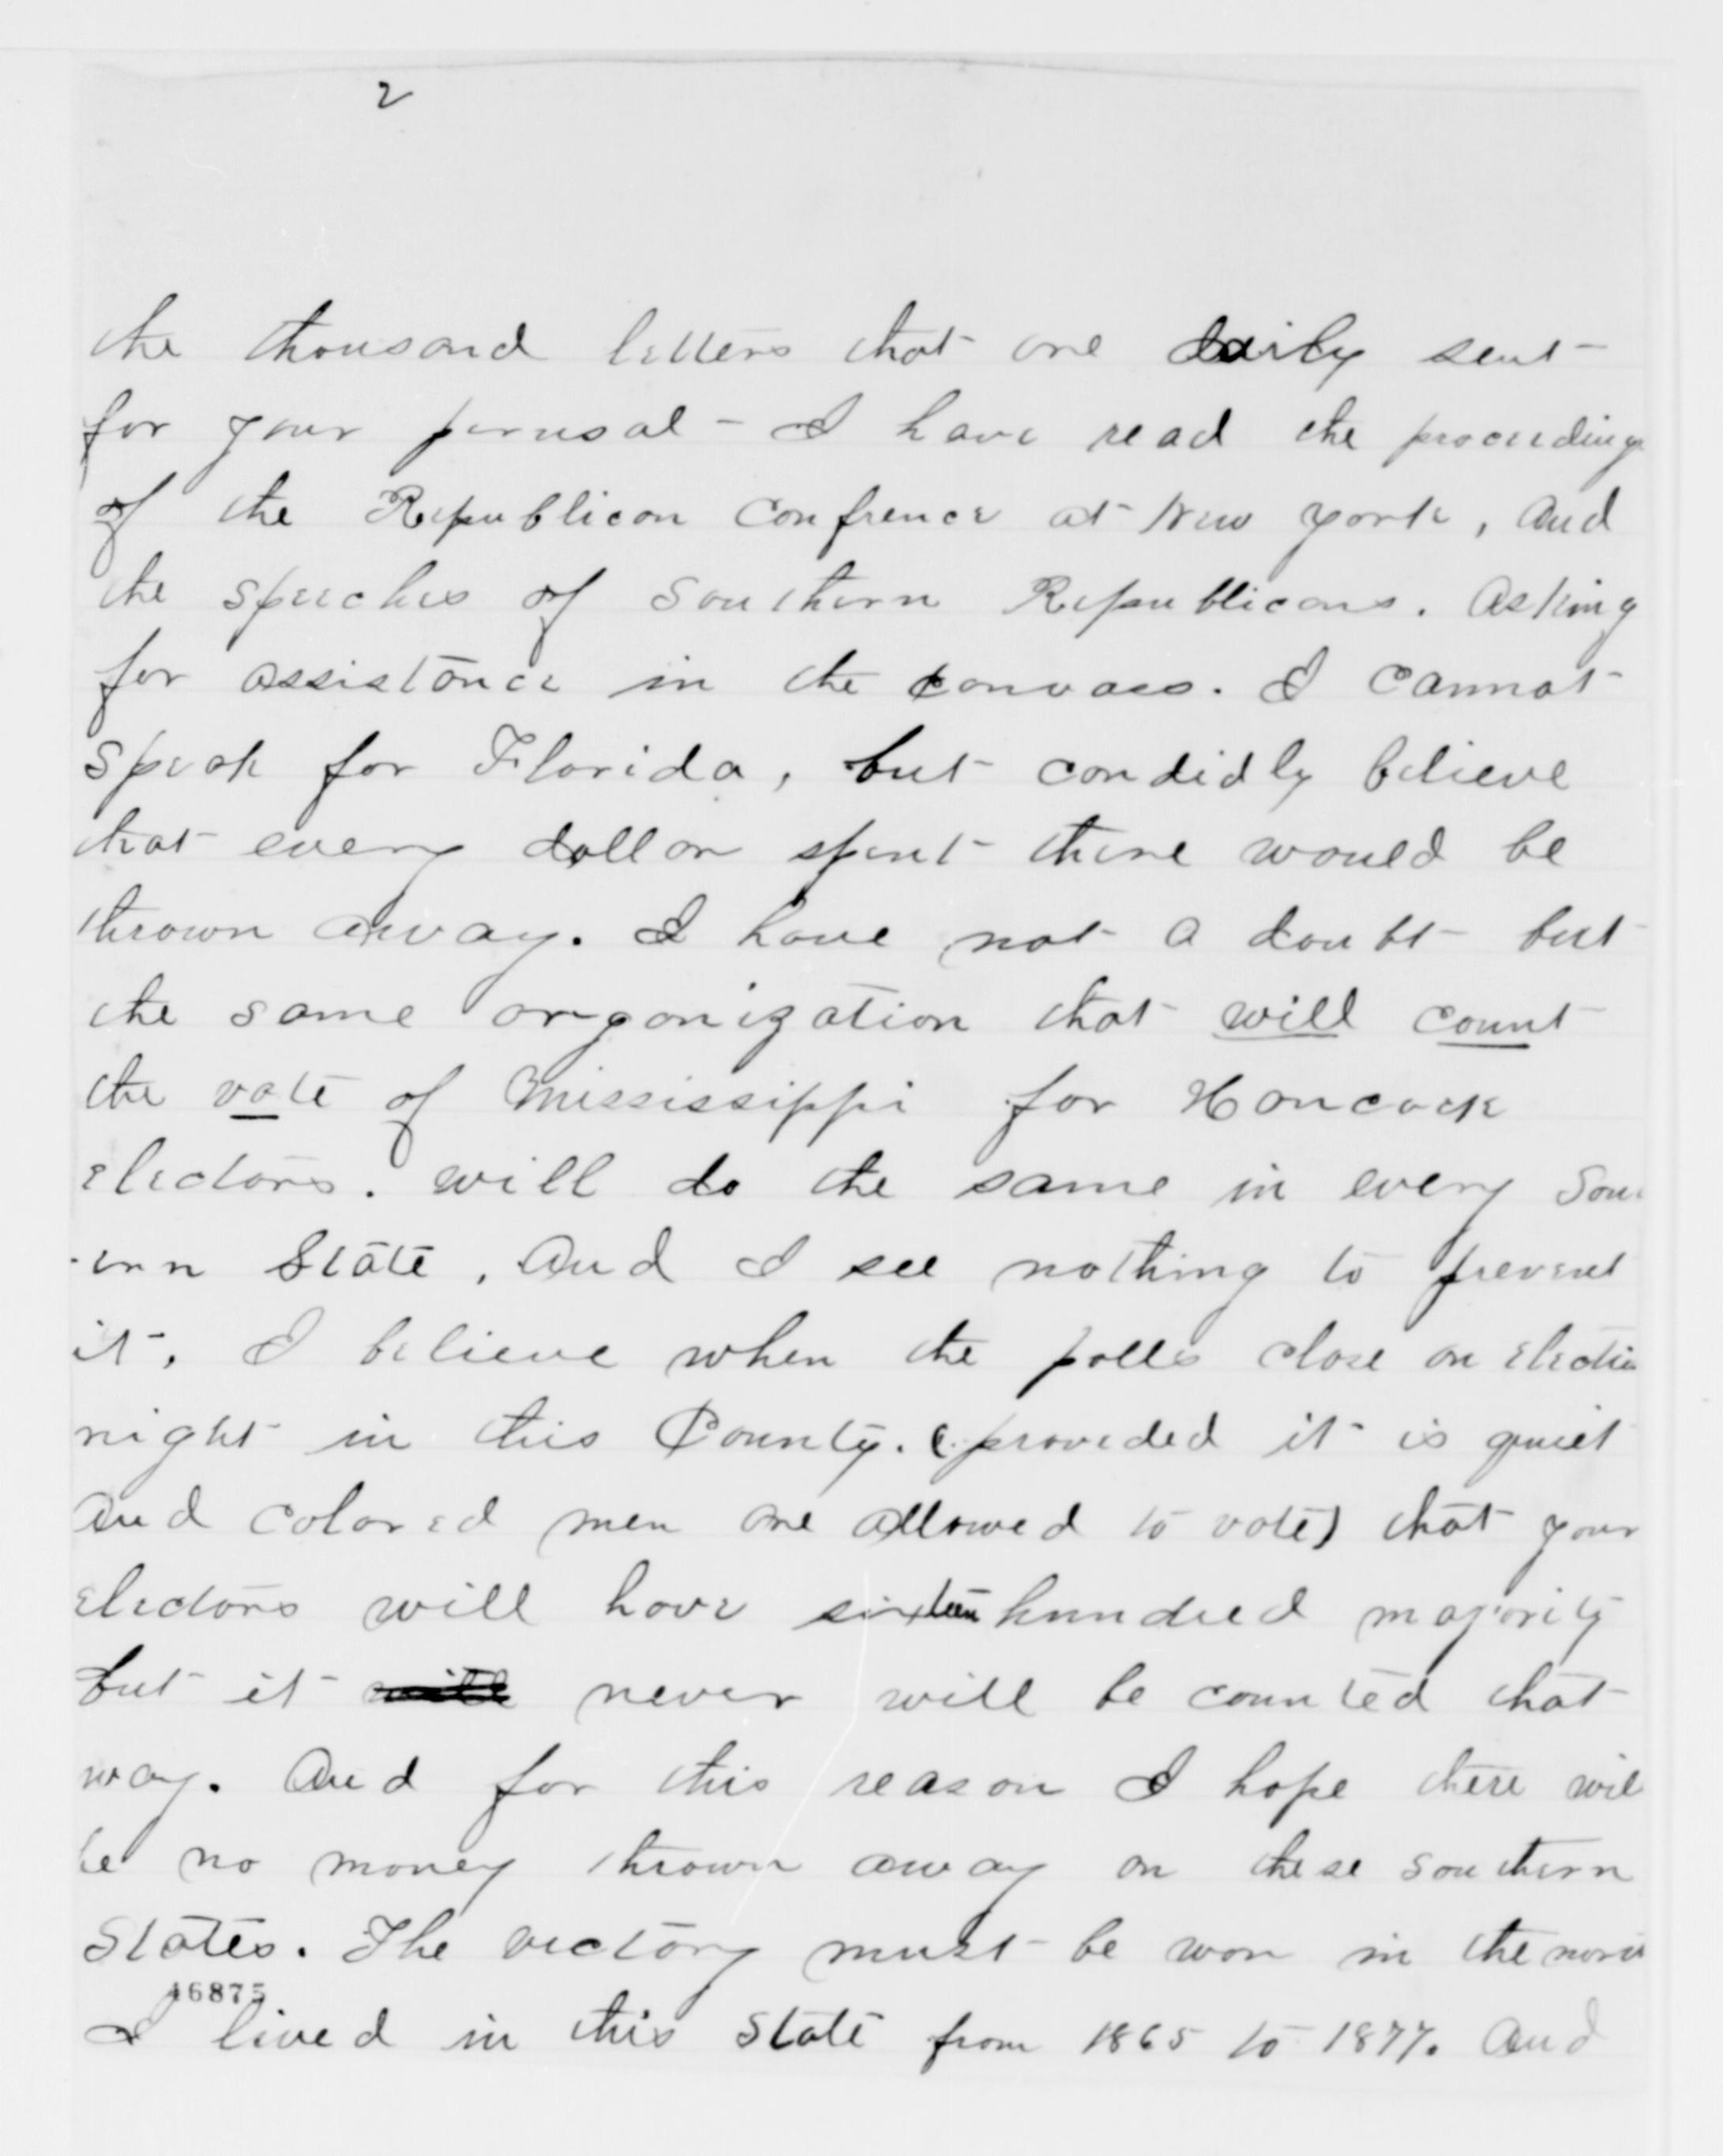 2
the thousand letters that are daily sent
for your perusal - I have read the proceedings
of the Republican Confrence at New York, And
the speeches of Southern Republicans. Asking
for assistance in the canvass. I cannot
speak for Florida, but candidly believe
that every dollar spent there would be
thrown away. I have not a doubt but
the same organization that will count
the vote of Mississippi for Hancock
electors. will do the same in every Sou
-ern State, And I see nothing to prevent
it. I believe when the polls close on electi
night in this County. (provided it is quiet
And colored men are allowed to vote) that your
electors will have sixteen hundred majority
but it will never will be counted that
way. And for this reason I hope there wil
be no money thrown away on these southern
States. The victory must be won in the
16875
I lived in this State from 1865 to 1877. And